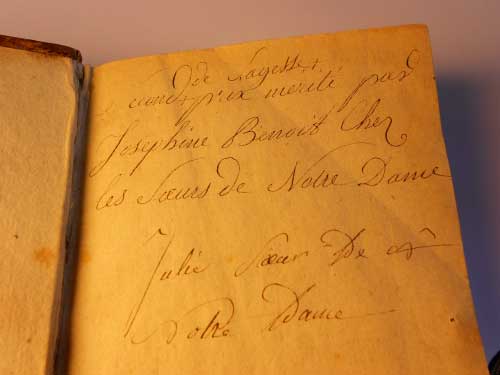 de Sagesse
second prix merité par
Josephine Benoit Chez
les Sœurs de Notre Dame
Julie Sœur De
Notre Dame